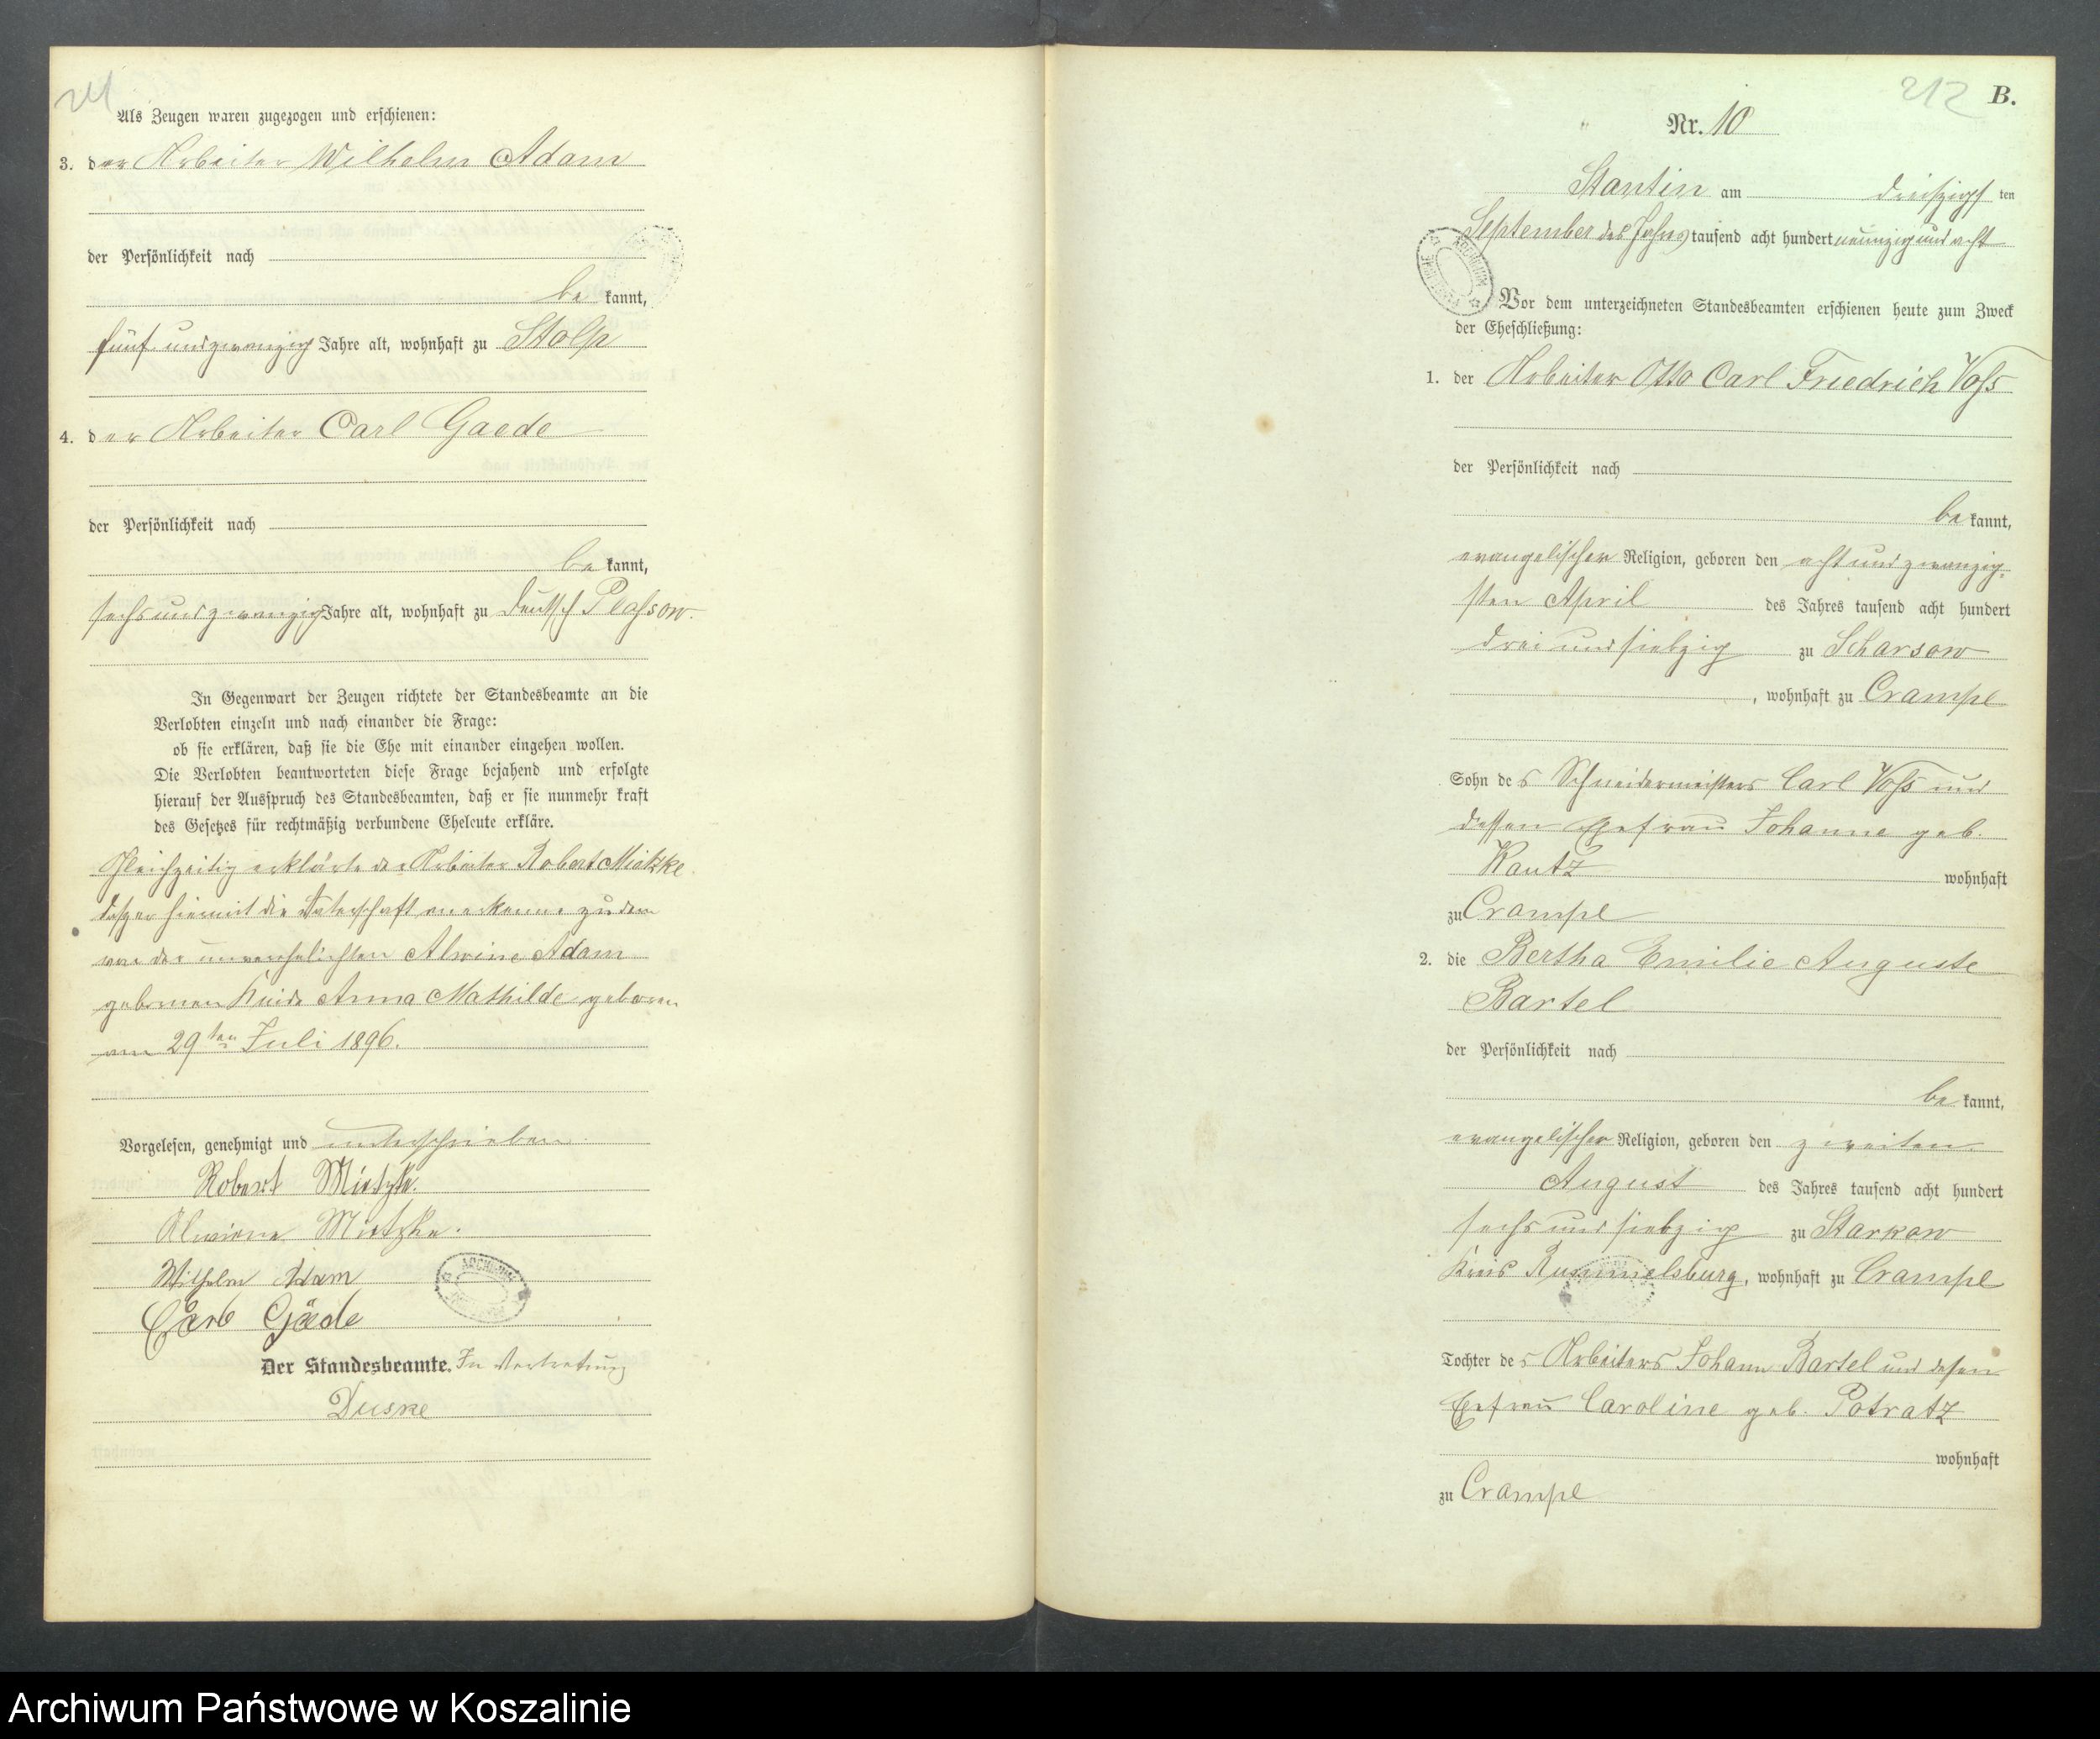 211
Als Zeugen waren zugezogen und erschienen:
3. der Arbeiter Wilhelm Adam
der Persönlichkeit nach
be kannt,
fünf und zwanzig Jahre alt, wohnhaft zu Stolp
4. der Arbeiter Carl Gaede
der Persönlichkeit nach
be kannt,
sechs und zwanzig Jahre alt, wohnhaft zu Deutsch Plassow.
In Gegenwart der Zeugen richtete der Standesbeamte an die
Verlobten einzeln und nach einander die Frage:
ob sie erklären, daß sie die Ehe mit einander eingehen wollen.
Die Verlobten beantworteten diese Frage bejahend und erfolgte
hierauf der Ausspruch des Standesbeamten, daß er sie nunmehr kraft
des Gesetzes für rechtmäßig verbundene Eheleute erkläre.
Gleichzeitig erklärte der Arbeiter Robert Mietzke
daß er hiermit die Vaterschaft anerkenne zu dem
von der unverehelichten Alwine Adam
gebornen Kinde Anna Mathilde geboren
am 29ten Juli 1896.
Vorgelesen, genehmigt und unterschrieben.
Robert Mietzke.
Alwiene Mietzke.
Wilhelm Adam
Carl Gäde
Der Standesbeamte. In Vertretung
Duske
212 B.
Nr. 10
Stantin am dreißigs ten
September des Jahres tausend acht hundert neunzig und acht
Vor dem unterzeichneten Standesbeamten erschienen heute zum Zweck
der Eheschließung:
1. der Arbeiter Otto Carl Friedrich Voß
der Persönlichkeit nach
be kannt,
evangelischer Religion, geboren den acht und zwanzig-
sten April des Jahres tausend acht hundert
drei und siebzig zu Scharsow
, wohnhaft zu Crampe
Sohn des Schneidermeisters Carl Voß und
dessen Ehefrau Johanne geb.
Kautz wohnhaft
zu Crampe
2. die Bertha Emilie Auguste
Bartel
der Persönlichkeit nach
be kannt,
evangelischer Religion, geboren den zweiten
August des Jahres tausend acht hundert
sechs und siebzig zu Starkow
Kreis Rummelsburg, wohnhaft zu Crampe
Tochter des Arbeiters Johann Bartel und dessen
Ehefrau Caroline geb. Potratz
wohnhaft
zu Crampe
Archiwum Państwowe w Koszalinie